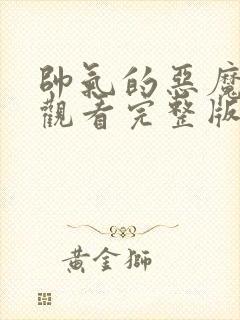 帥氣的惡魔
觀看完整版
黃金獅